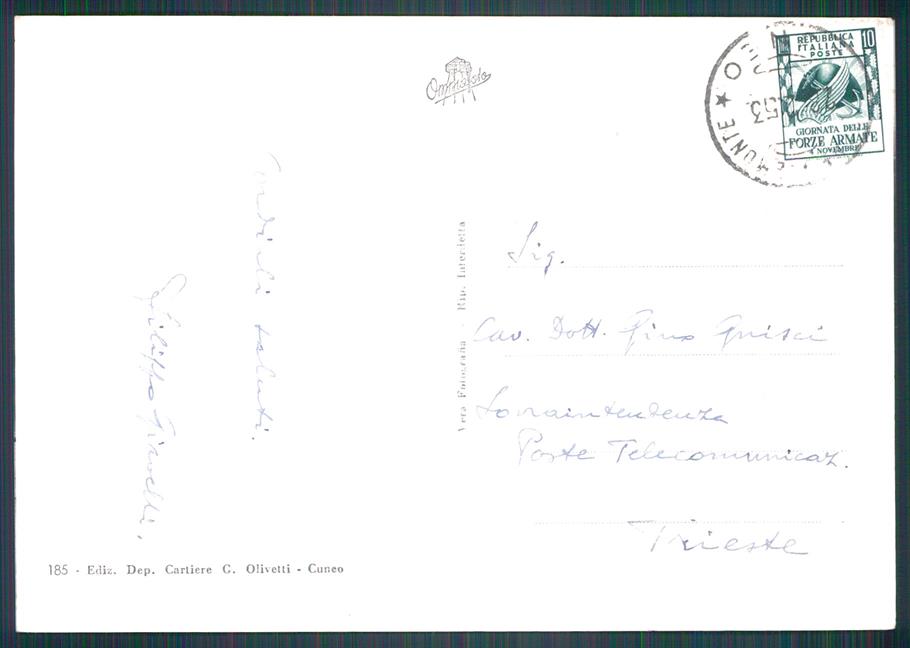 Omniafoto
REPUBBLICA
ITALIANA
POSTE
10
GIORNATA DELLE
FORZE ARMATE
4 NOVEMBRE
53
Cordiali saluti.
Filippo
Vera Fotografia - Rip. Interdetta
Sig.
Cav. Dott. Gino Guisci
Sovraintendenza
Poste Telecomunicaz.
Trieste
185 - Ediz. Dep. Cartiere G. Olivetti - Cuneo